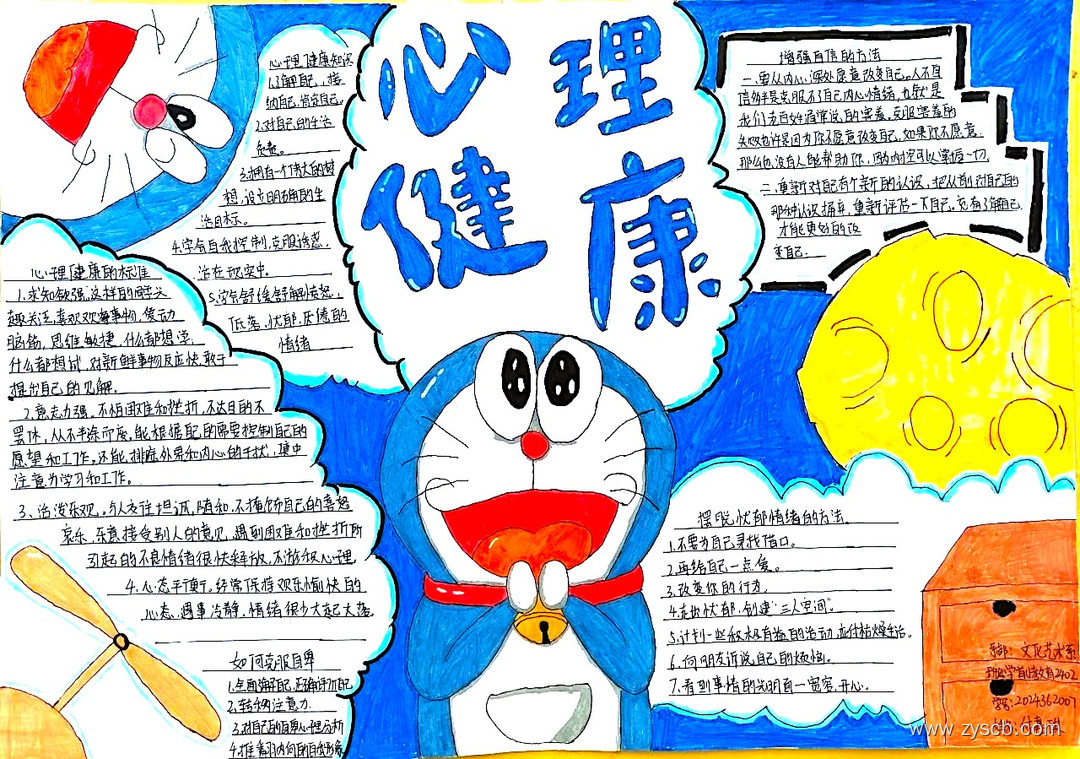 心理
健康
心理健康知识
1.了解自己,接
纳自己,肯定自己。
2.对自己的生活
负责。
3.拥有一个伟大的梦
想,设立明确的生
活目标。
4.学会自我控制,克服诱惑,
活在现实中。
5.学会舒缓舒解愤怒,
低落,忧郁,厌倦的
情绪
增强自信的方法
一.要从内心深处愿意改变自己。人不自
信多半是克服不了自己内心情绪,也就是
我们克百姓通常说的害羞,克服害羞的
失败也许是因为你不愿意改变自己,如果你不愿意
那么也没有人能帮助你,因为时空可以掌握一切。
二.重新对自己有个新的认识,把从前对自己的
那种认识摒弃,重新评估一下自己,完有了解自己
才能更好的改
变自己.
心理健康的标准
1.求知欲强。这样的同学兴
趣关泛,喜欢观海事物,爱动
脑筋,思维敏捷,什么都想学,
什么都想试,对新鲜事物反应快,敢于
提出自己的见解.
2.意志力强,不怕困难和挫折,不达目的不
罢休,从不半途而废,能根据自己的需要控制自己的
愿望和工作,还能排除外界和内心的干扰,集中
注意力学习和工作。
3、活泼乐观。与人交往坦诚,随和,不掩饰自己的喜怒
哀乐,乐意接受别人的意见,遇到困难和挫折所
引起的不良情绪很快释放,不游极心理.
4.心态平衡,经常保持欢乐愉快的
心态,遇事冷静,情绪很少大起大落
如何克服自卑
1.全面了解自己,正确评价自己
2.转移注意力
3.对自己的自卑心理分析
摆脱忧郁情绪的方法.
1.不要为自己寻找借口。
2.再给自己一点爱。
3.改变你的行为.
4.走出忧郁,创建"三人空间".
5.计划一些积极有益的活动,应付枯燥生活。
6.向朋友诉说自己的烦恼。
7.看到事情的光明面一宽宽,开心。
系部:文化艺术系
班级:学前教育2402
学号:2024362007
www.zyscb.com